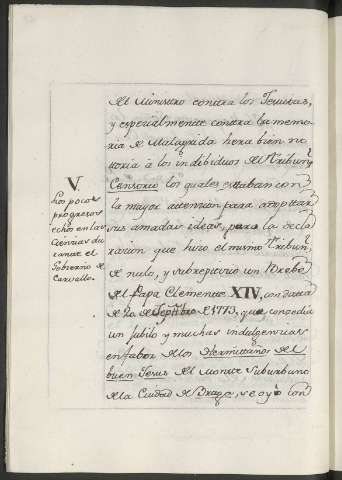 del Ministro contra los Jesuitas,
y espezialmente contra la memo-
ria de Malagrida hera bien no-
toria à los indibiduos del tribunl
Censorio los quales estaban con
la mayor attenzion para adopttar
sus amadas ideas, para la decla-
razion que hizo el mismo tribunl
de nulo, y subrepticio un Brebe
del Papa Clemente XIV, con datta
de 20 de Septtbre de 1773, que conzedia
un Jubilo y muchas indulgenzias
en fabor de los Hermittaños del
buen Jesus del Monte suburbano
de la Ciudad de Braga, se oyò con
V.
Los pocos
progresos
echos en las
Cienzias du-
rante el
Gobierno de
Carvallo.